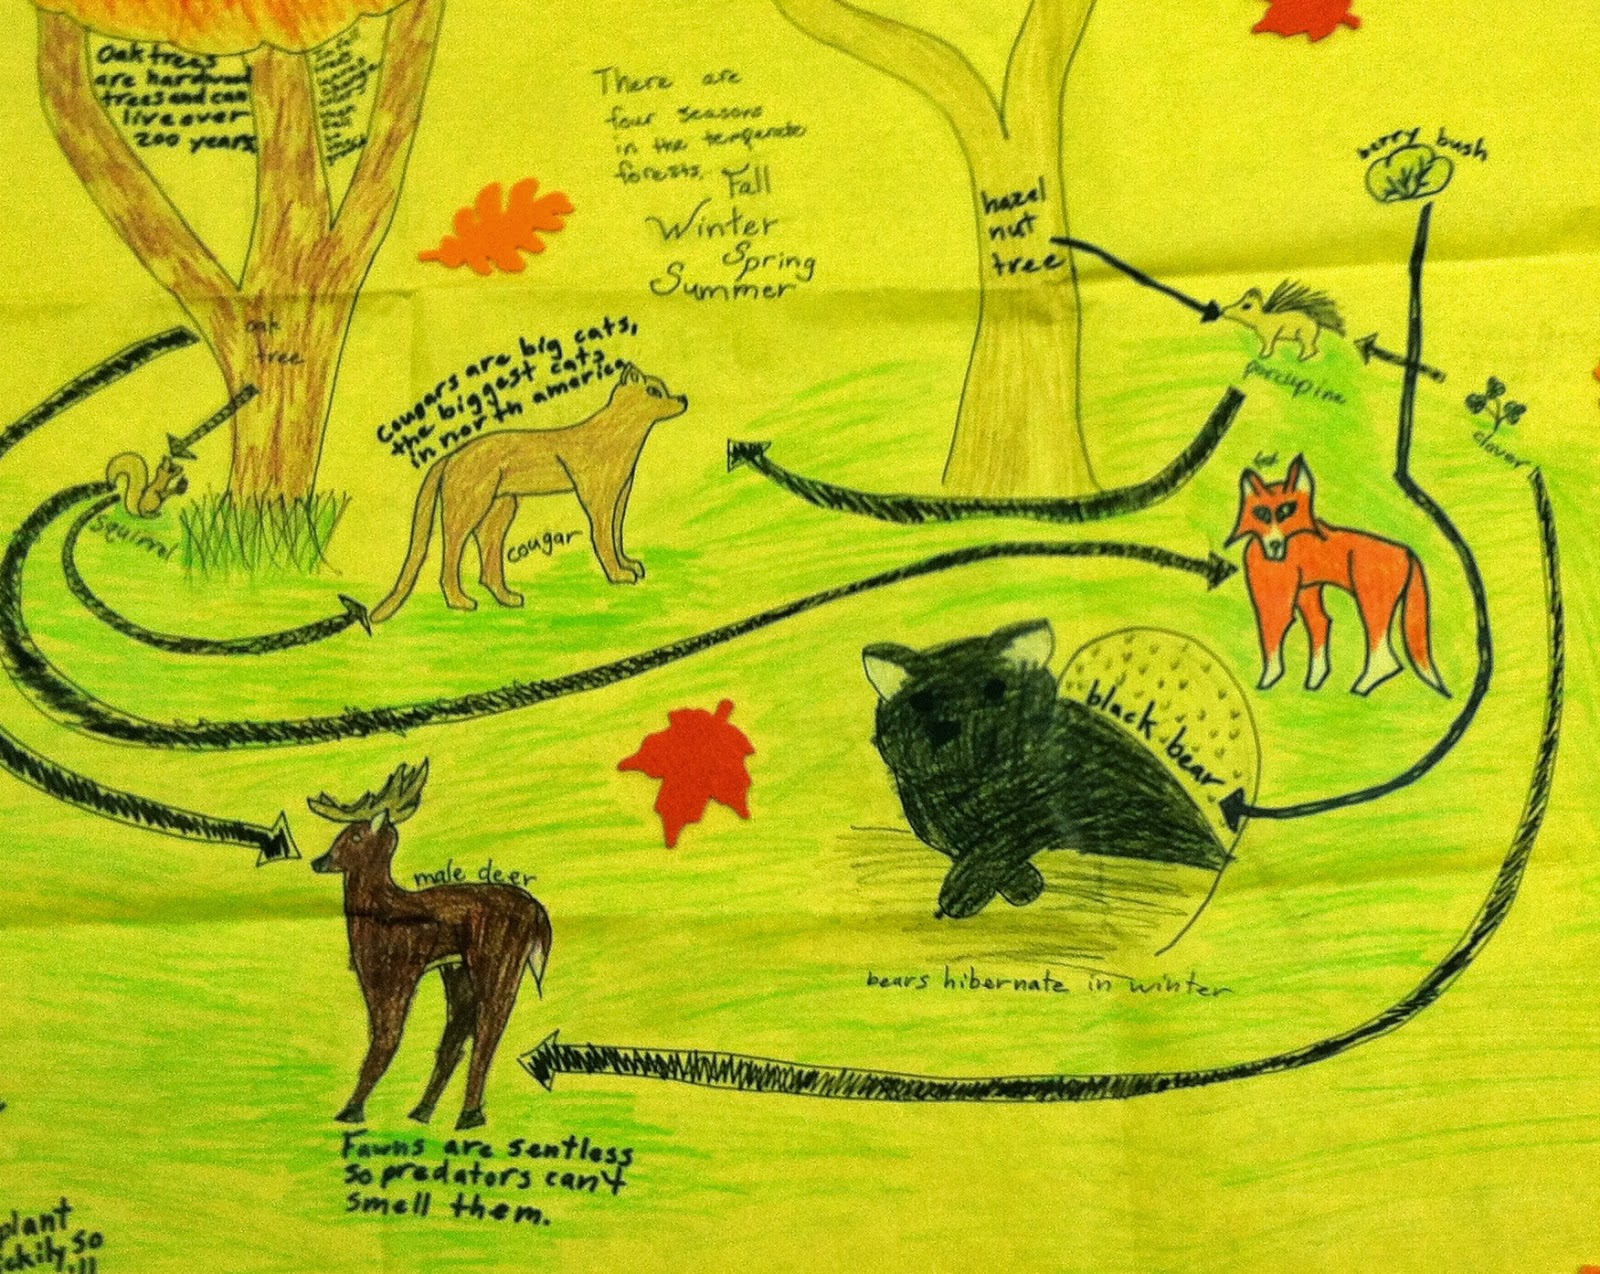 Oak trees
are hardwood
trees and can
live over
200 years.
There are
four seasons
in the temperate
forests. Fall
Winter
Spring
Summer
hazel
nut
tree
berry bush
oak
tree
Cougars are big cats,
the biggest cats
in north america.
porcupine
clover
squirrel
cougar
black bear
male deer
bears hibernate in winter
Fawns are sentless
so predators can't
smell them.
plant
so